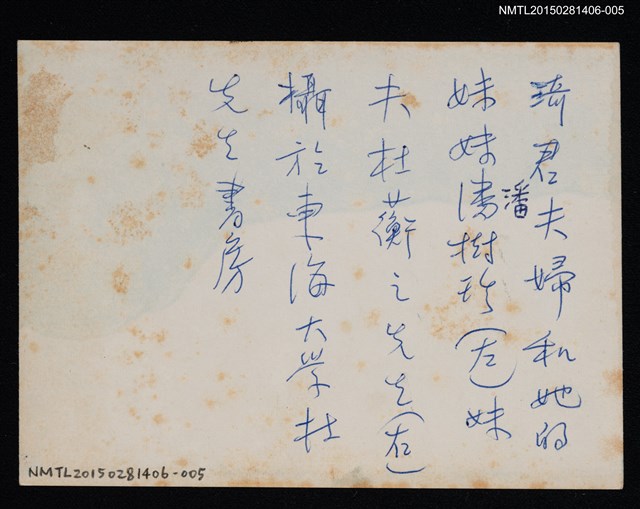 NMTL20150281406-005
琦君夫婦和她的
妹妹潘樹珍(左)妹
潘
夫杜蘅之先生(右)
攝於東海大学杜
先生書房
NMTL20150281406-005